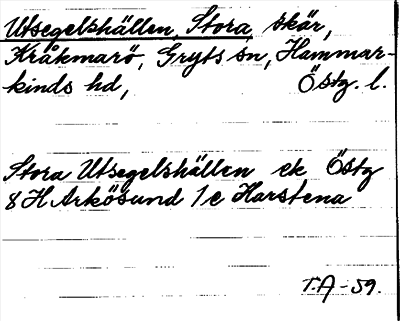 Utsegelshällen, Stora, skär,
Kråkmarö, Gryts sn, Hammar-
kinds hd, Östg. l.
Stora Utsegelshällen ek Östg
8H Arkösund 1e Harstena
T.A-59.